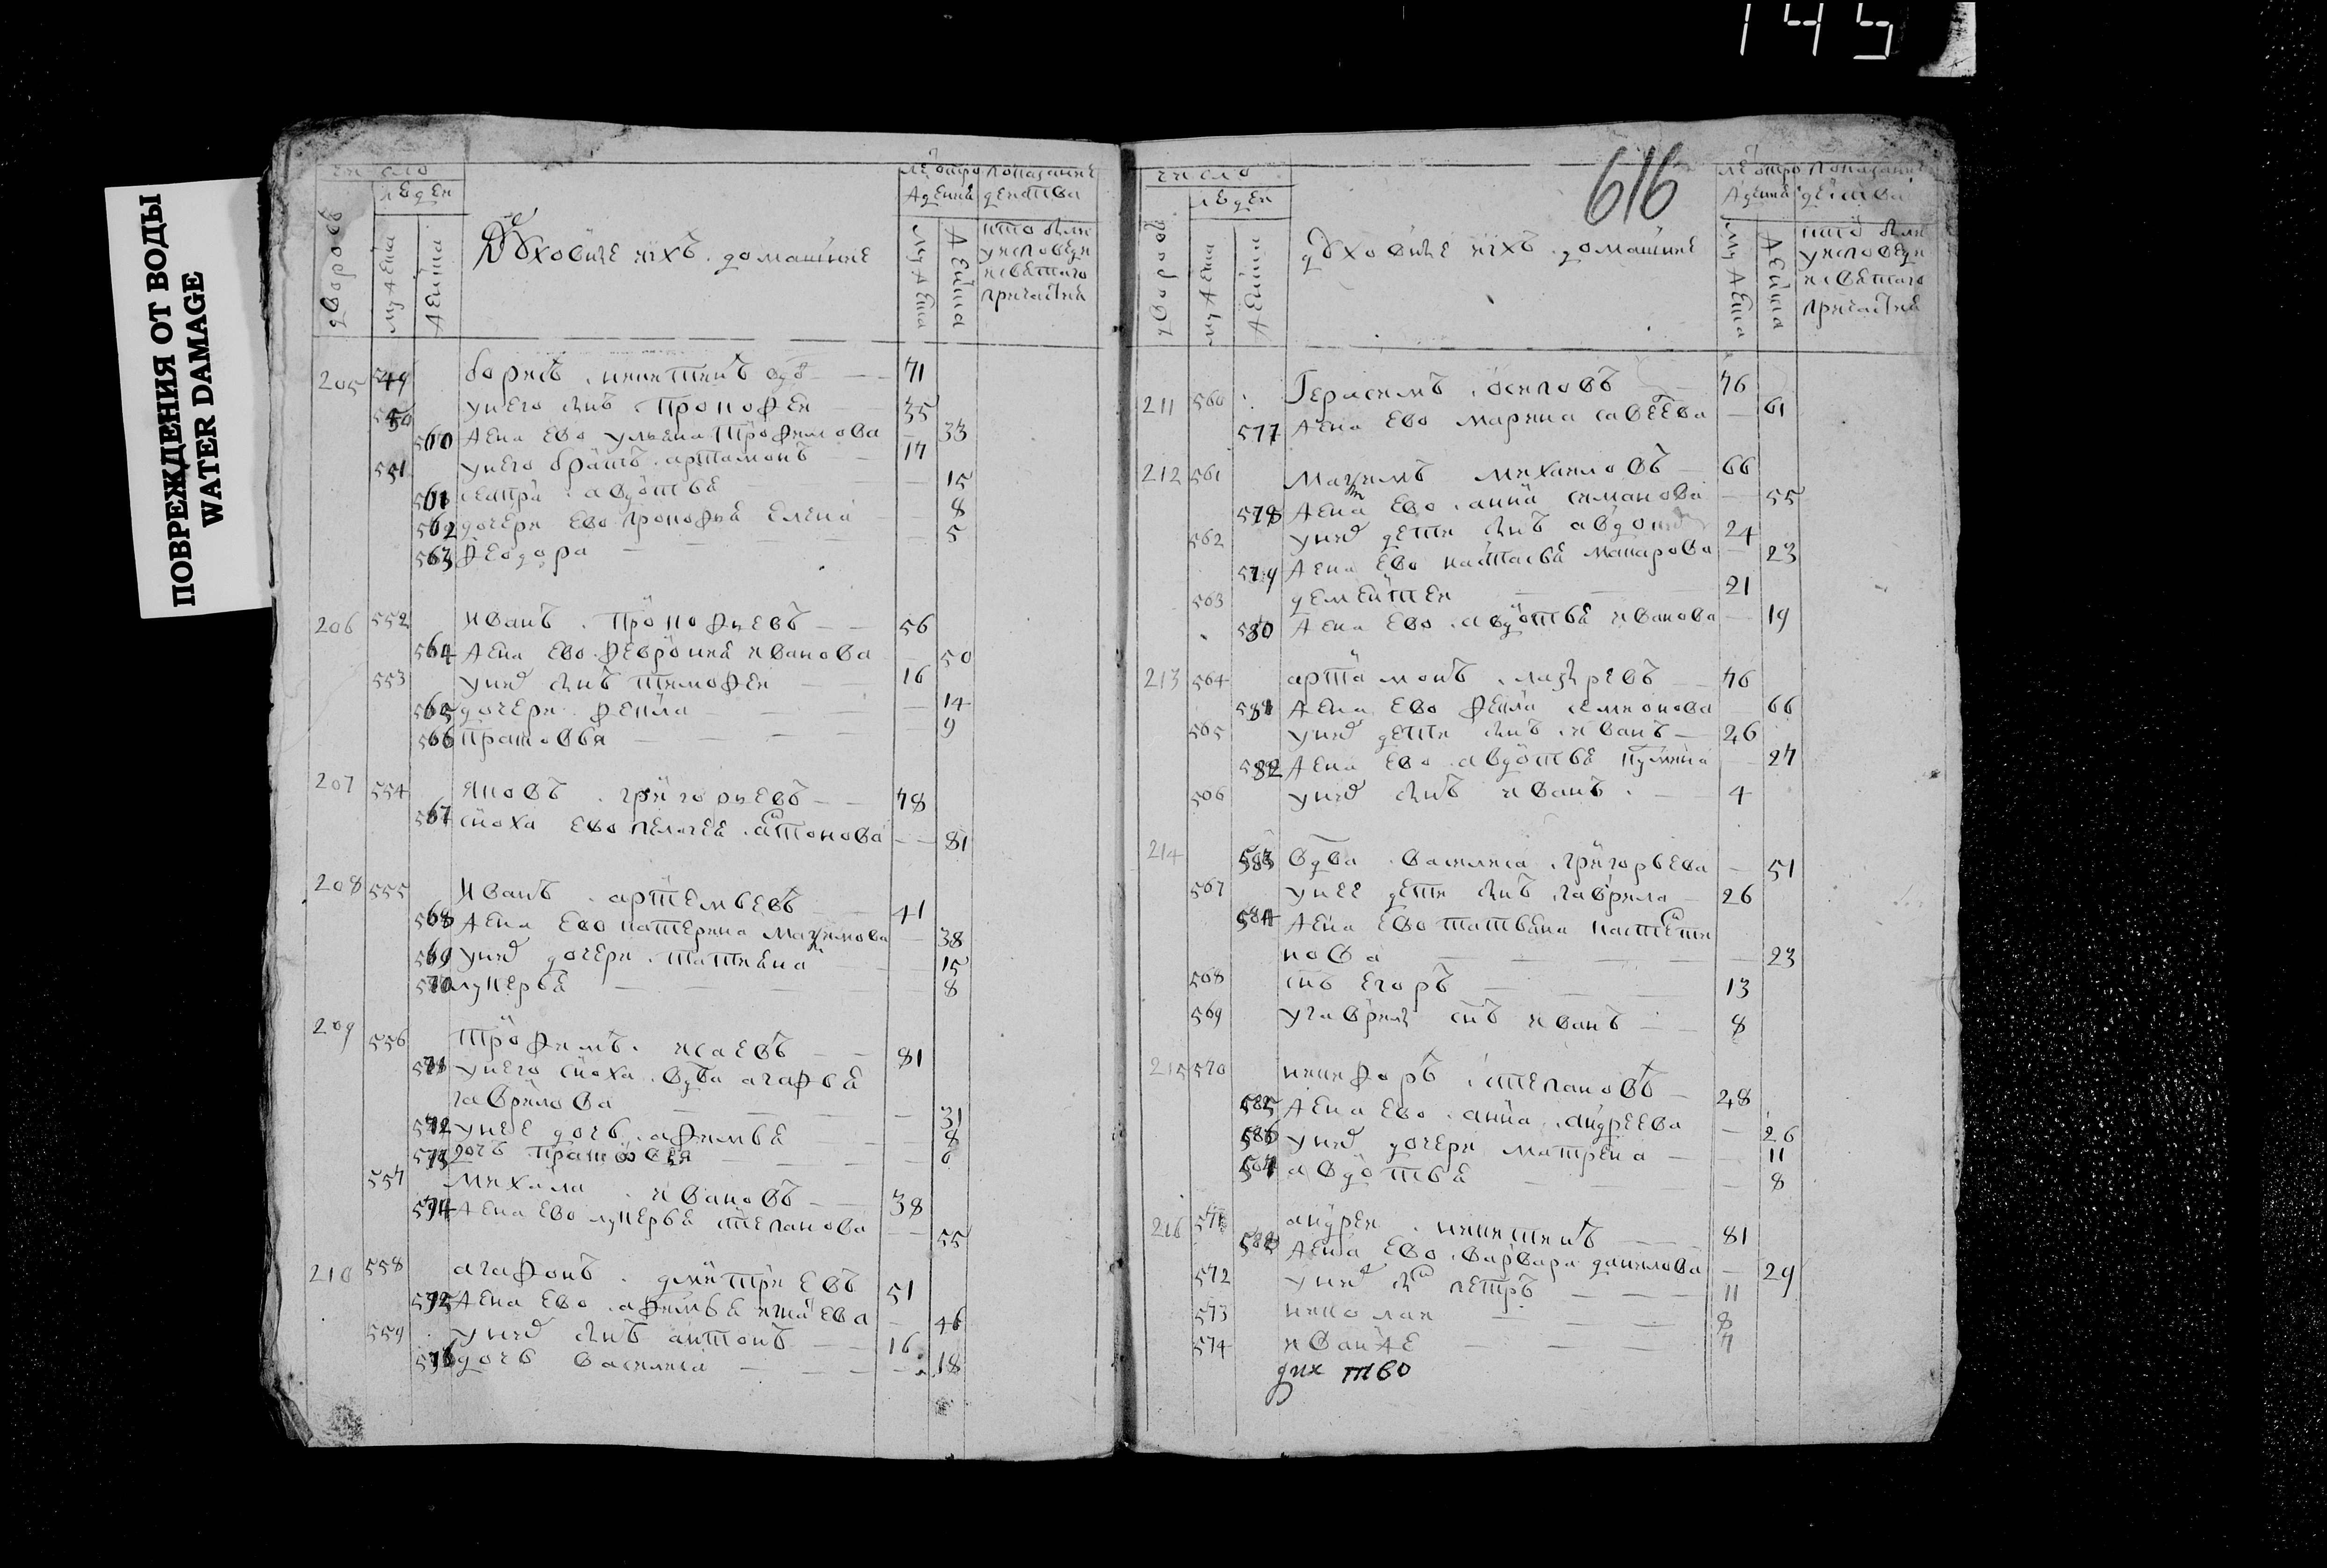 145
ПОВРЕЖДЕНИЯ ОТ ВОДЫ
WATER DAMAGE
число
дворовъ
людеи
мужеска
женска
Дховные иихъ домашние
лѣ отро
ждения
мужеска
женска
Показание
действа
кто былъ
уисповеди
исвятаго
причастия
205 549 борисъ никитинъ вдв 71
550 унего снъ прокофеи 35
560 жена ево ульяна трофимова 33
551 унего братъ артамонъ 17
561 сестра авдотья 15
562 дочери ево прокофья елена 8
563 феодора 5
206 552 иванъ прокофьевъ 56
564 жена ево феврония иванова 50
553 унихъ снъ тимофеи 16
565 дочери фекла 14
566 прасковья 9
207 554 яковъ григорьевъ 78
567 сноха ево пелагея антонова 81
208 555 иванъ артемьевъ 41
568 жена ево катерина максимова 38
569 унихъ дочери татияна 15
570 лукерья 8
209 556 трофимъ исаевъ 81
571 унего сноха вдва агафья
гаврилова 31
572 унее дочь афимья 8
573 дочь прасковья 6
557 михаила ивановъ 38
574 жена ево лукерья степанова 55
210 558 агафонъ дмитриевъ 51
575 жена ево афимья игнатева 46
559 унихъ снъ антонъ 16
576 дочь василиса 18
616
число
дворов
людеи
мужеска
женска
дховные иихъ домашние
лѣ отро
ждения
мужеска
женска
Показание
действа
кто былъ
уисповеди
исвятаго
причастия
211 560 Герасимъ осиповъ 76
577 жена ево марина савеева 61
212 561 Махимъ михаиловъ 66
578 жена ево анна симанова 55
562 унихъ дети снъ авдоким 24
579 жена ево настасья макарова 23
563 дементеи 21
580 жена ево авдотья иванова 19
213 564 артамонъ лазаревъ 76
581 жена ево фекла семионова 66
565 унихъ дети снъ иванъ 26
582 жена ево авдотья кузмина 27
566 унихъ снъ иванъ 4
214 583 вдва василиса григорьева 51
567 унее дети снъ гаврила 26
584 жена ево татьяна константи
нова 23
568 снъ егоръ 13
569 угаврилы снъ иванъ 8
215 570 никифоръ степановъ 28
585 жена ево анна андреева 26
586 унихъ дочери матрена 11
587 авдотья 8
216 571 андреи никитинъ 81
588 жена ево варвара данилова 29
572 унихъ сна петръ 11
573 николаи 8
574 иван же 7